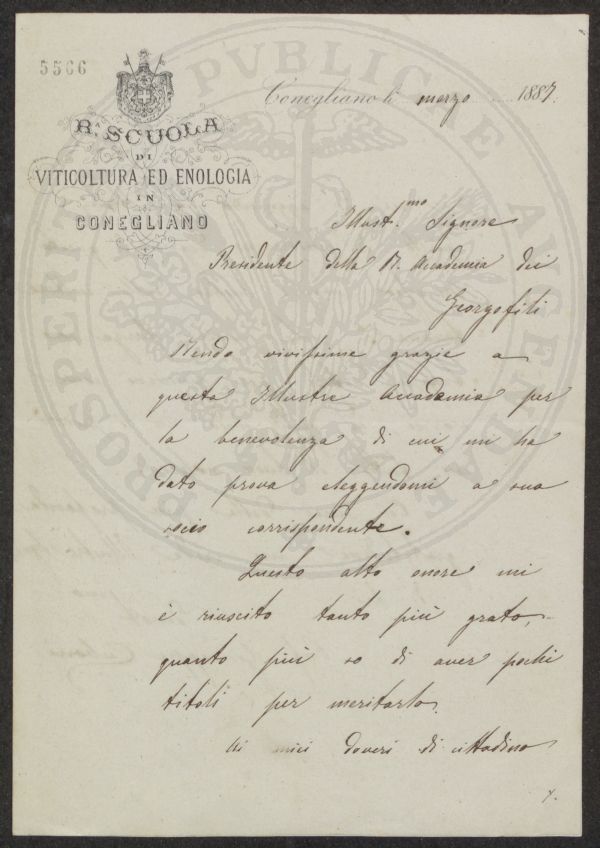 5566
R. SCUOLA
DI
VITICOLTURA ED ENOLOGIA
IN
CONEGLIANO
Conegliano li marzo 1887.
Illust.mo Signore
Presidente della R. Accademia dei
Georgofili
Rendo vivissime grazie a
questa Illustre Accademia per
la benevolenza di cui mi ha
dato prova eleggendomi a suo
socio corrispondente.
Questo alto onore mi
è riuscito tanto più grato,
quanto più so di aver pochi
titoli per meritarlo.
Ai miei doveri di cittadino
PROSPERITATI PUBLICAE AUGENDAE